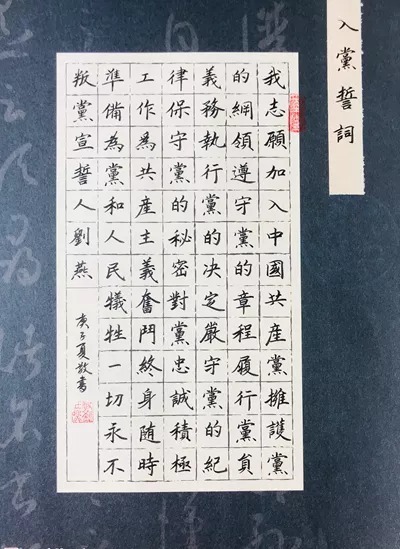 入黨誓詞
我志願加入中國共産黨擁護黨
的綱領遵守黨的章程履行黨員
義務執行黨的决定嚴守黨的紀
律保守黨的秘密對黨忠誠積極
工作為共産主義奮鬥終身随時
準備為黨和人民犧牲一切永不
叛黨宣誓人劉燕
庚子夏敬書